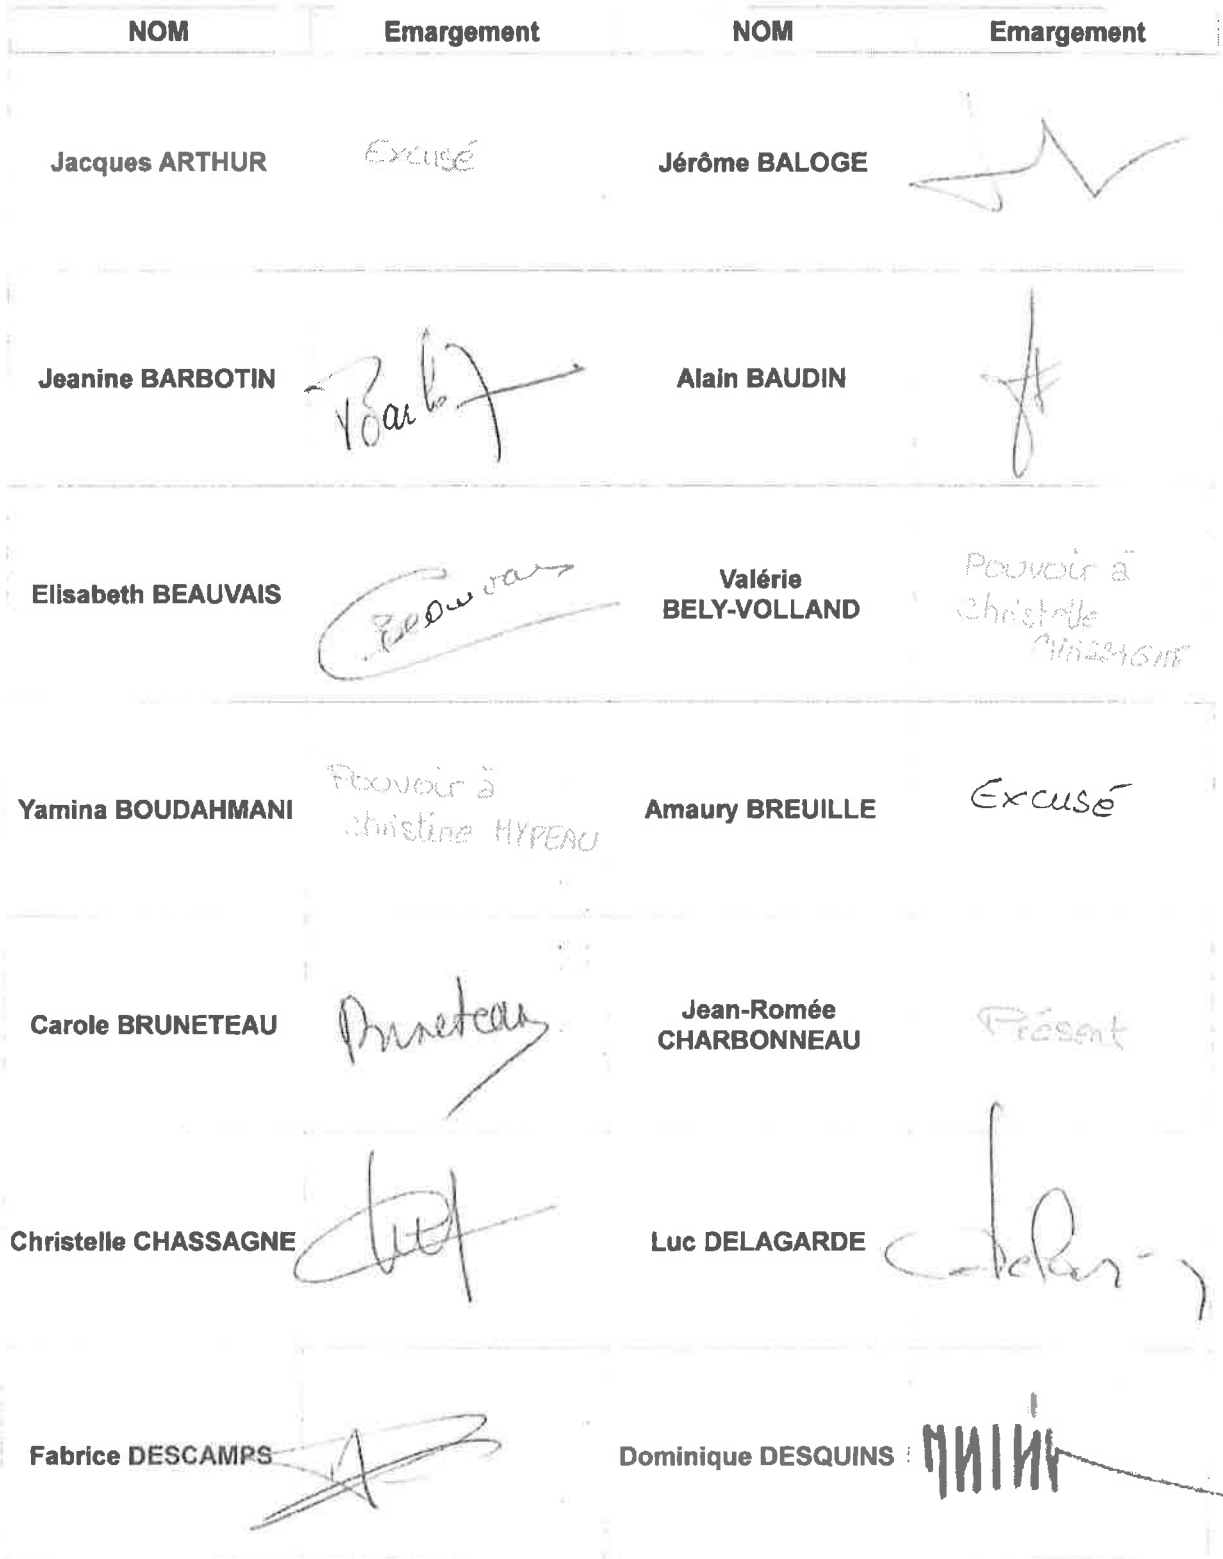 NOM Emargement NOM Emargement
Jacques ARTHUR Excusé Jérôme BALOGE
Jeanine BARBOTIN Alain BAUDIN
Elisabeth BEAUVAIS Beauvais
Valérie
BELY-VOLLAND
Pouvoir à
Christelle
CHASSAGNE
Yamina BOUDAHMANI
Pouvoir à
christine HYPEAU
Amaury BREUILLE Excusé
Carole BRUNETEAU Bruneteau
Jean-Romée
CHARBONNEAU
Présent
Christelle CHASSAGNE Luc DELAGARDE
Fabrice DESCAMPS Dominique DESQUINS